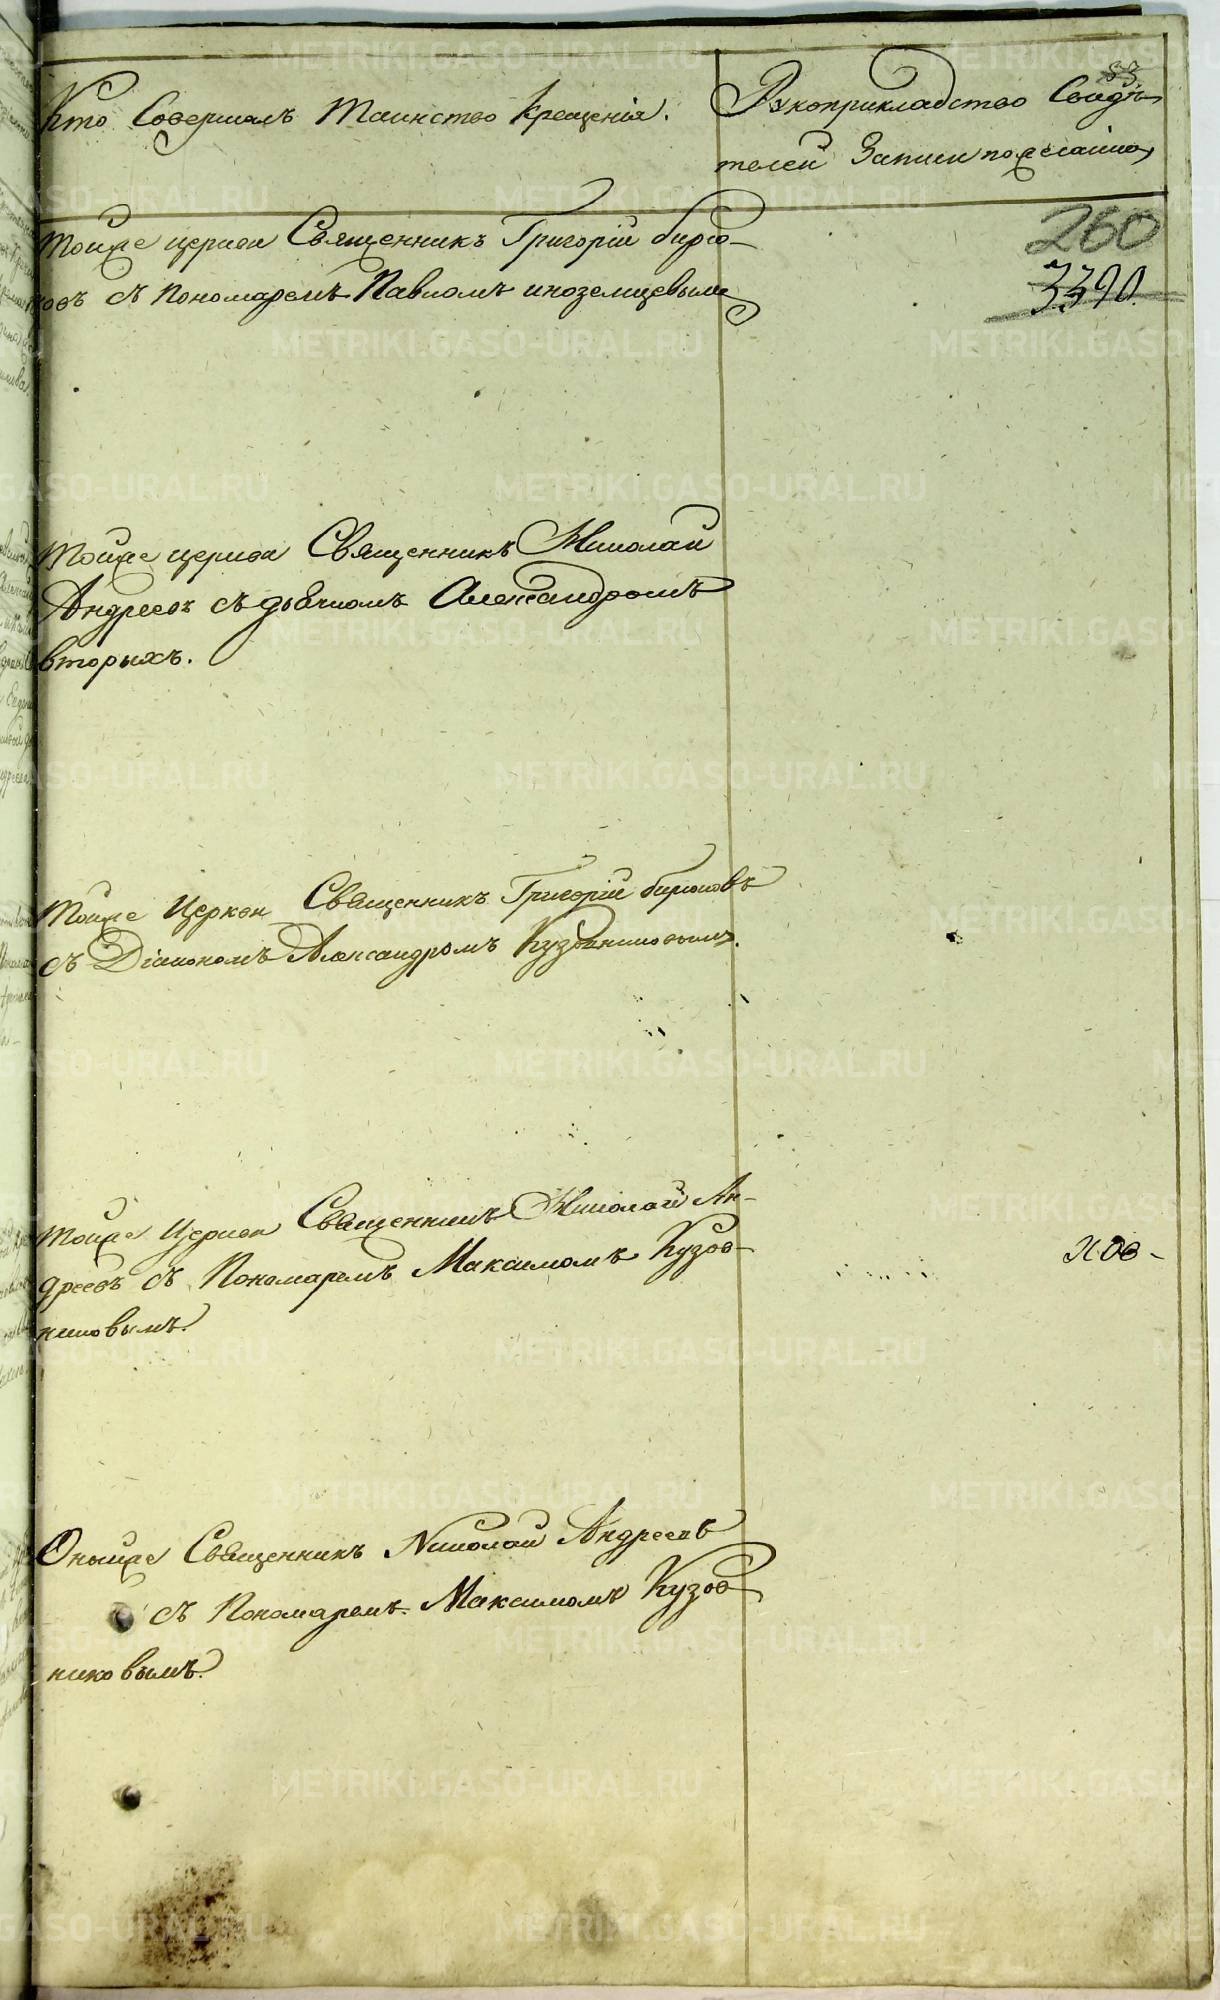 83.
Кто Совершалъ Таинство Крещенія.
Рукоприкладство Свидѣ-
телей Записи по желанію
260
3390.
Тойже церкви Священникъ Григорій бирю-
ковъ съ Пономаремъ Павломъ иноземцевымъ
Тойже церкви Священникъ Николай
Андреевъ съ дьячкомъ Александромъ
вторыхъ.
Тойже Церкви Священникъ Григорій бирюковъ
съ Діакономъ Александромъ Кузовниковымъ.
Тойже Церкви Священникъ Николай Ан-
дреевъ съ Пономаремъ Максимомъ Кузов-
никовымъ.
Онойже Священникъ Николай Андреевъ
съ Пономаремъ Максимомъ Кузов-
никовымъ.
METRIKI.GASO-URAL.RU